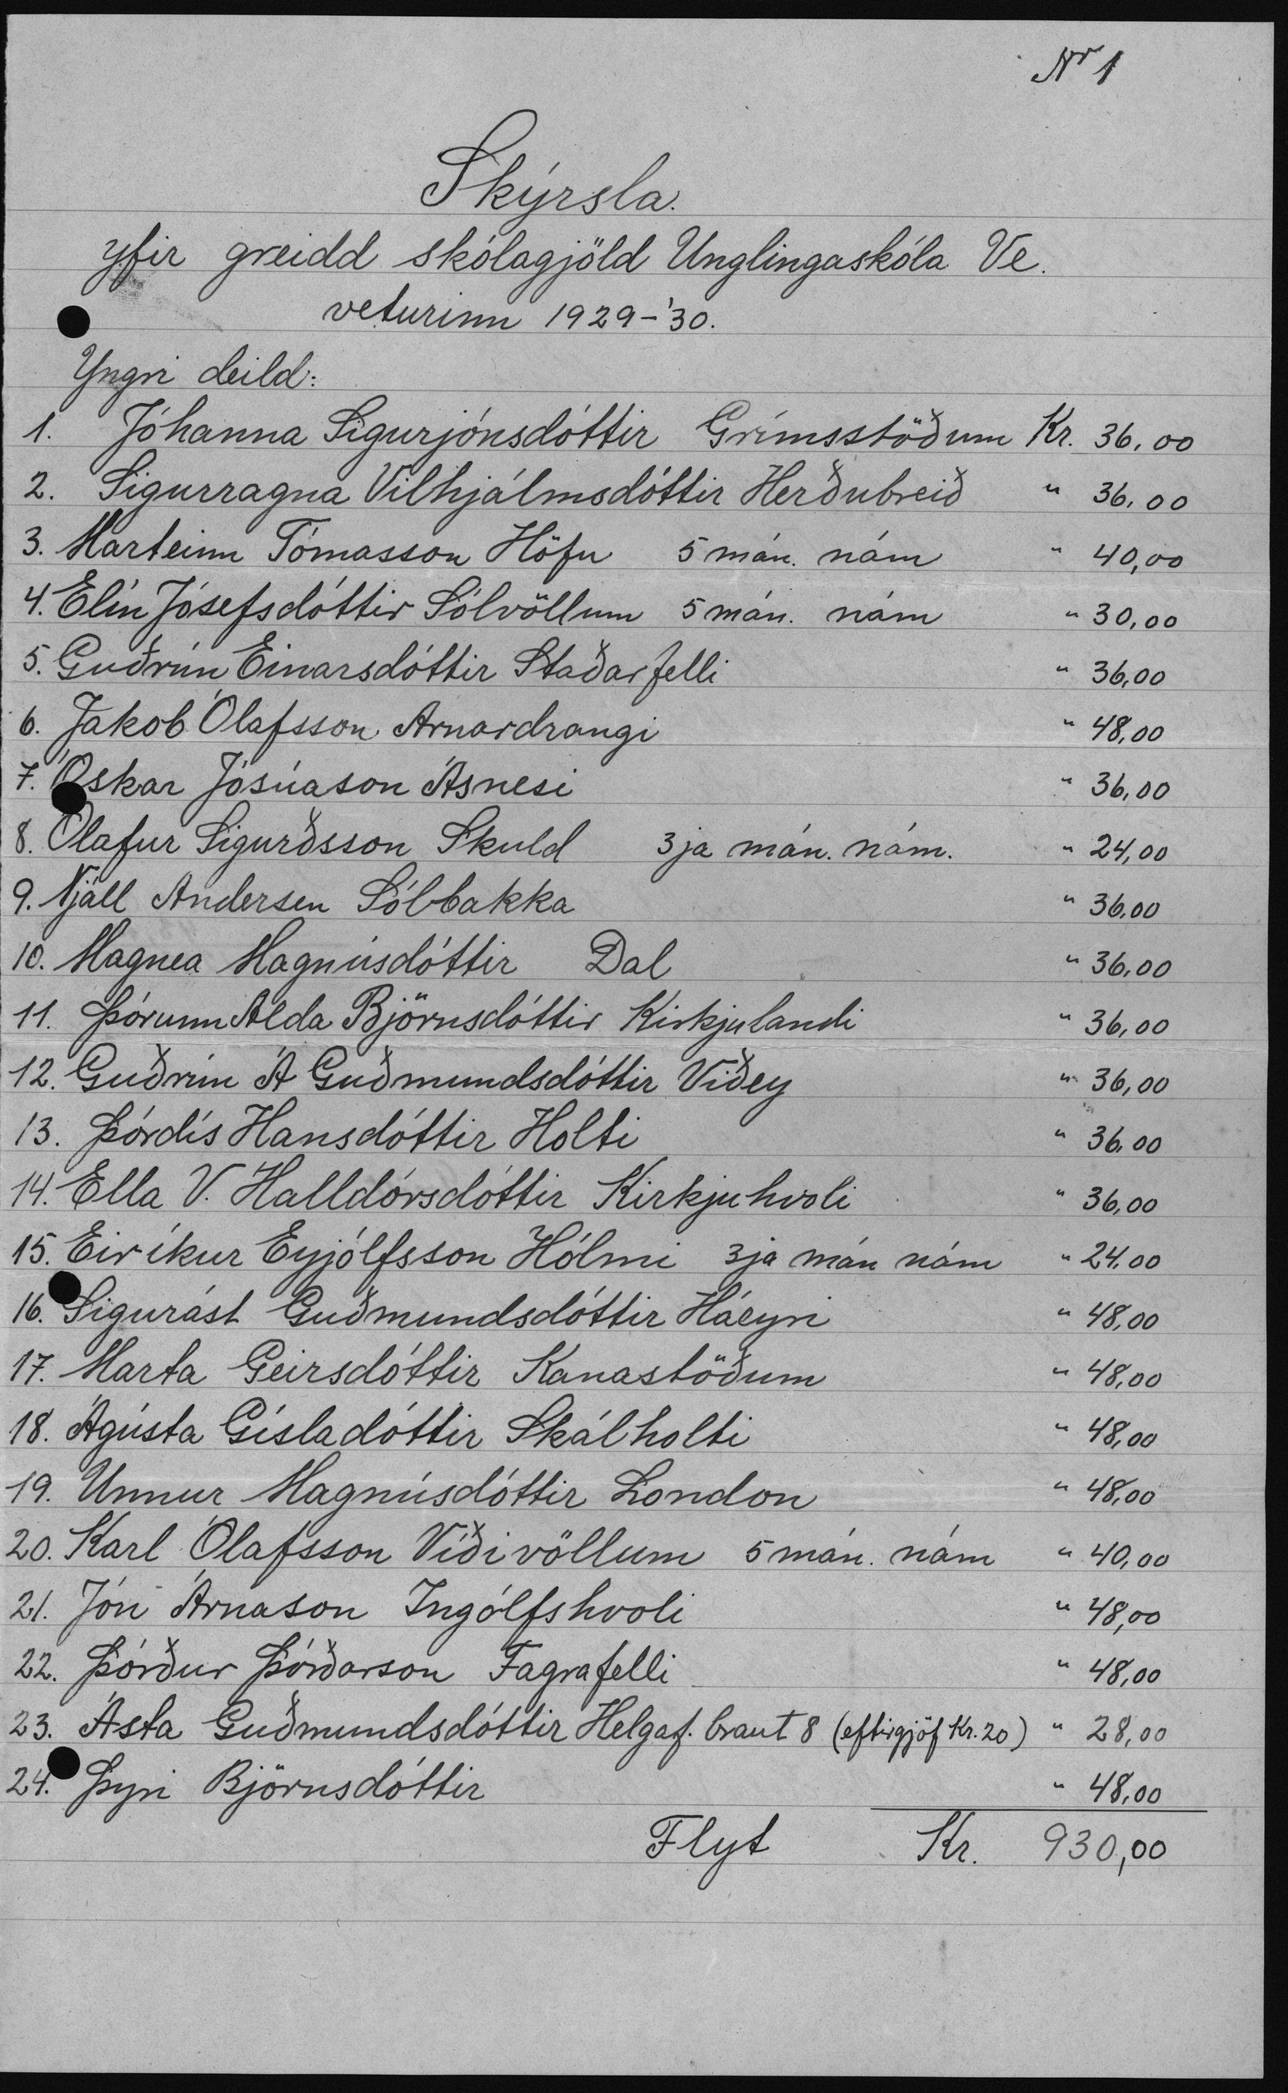 Nr 1
Skýrsla.
yfir greidd skólagjöld Unglingaskóla Ve.
veturinn 1929-'30.
Yngri deild:
1. Jóhanna Sigurjónsdóttir Grímsstöðum Kr. 36,00
2. Sigurragna Vilhjálmsdóttir Herðubreið " 36,00
3. Marteinn Tómasson Höfn 5 mán. nám " 40,00
4. Elín Jósefsdóttir Sólvöllum 5 mán. nám " 30,00
5. Guðrún Einarsdóttir Staðarfelli " 36,00
6. Jakob Ólafsson Arnardrangi " 48,00
7. Óskar Jósúason Ásnesi " 36,00
8. Ólafur Sigurðsson Skuld 3ja mán. nám. " 24,00
9. Njáll Andersen Sólbakka " 36,00
10. Magnea Magnúsdóttir Dal " 36,00
11. Þórunn Alda Björnsdóttir Kirkjulandi " 36,00
12. Guðrún Á Guðmundsdóttir Viðey " 36,00
13. Þórdís Hansdóttir Holti " 36,00
14. Ella V. Halldórsdóttir Kirkjuhvoli " 36,00
15. Eiríkur Eyjólfsson Hólmi 3ja mán nám " 24,00
16. Sigurást Guðmundsdóttir Háeyri " 48,00
17. Marta Geirsdóttir Kanastöðum " 48,00
18. Ágústa Gísladóttir Skálholti " 48,00
19. Unnur Magnúsdóttir London " 48,00
20. Karl Ólafsson Víðivöllum 5 mán. nám " 40,00
21. Jón Árnason Ingólfshvoli " 48,00
22. Þórður Þórðarson Fagrafelli " 48,00
23. Ásta Guðmundsdóttir Helgaf. braut 8 (eftirgjöf Kr. 20) " 28,00
24. Þyri Björnsdóttir " 48,00
Flyt Kr. 930,00